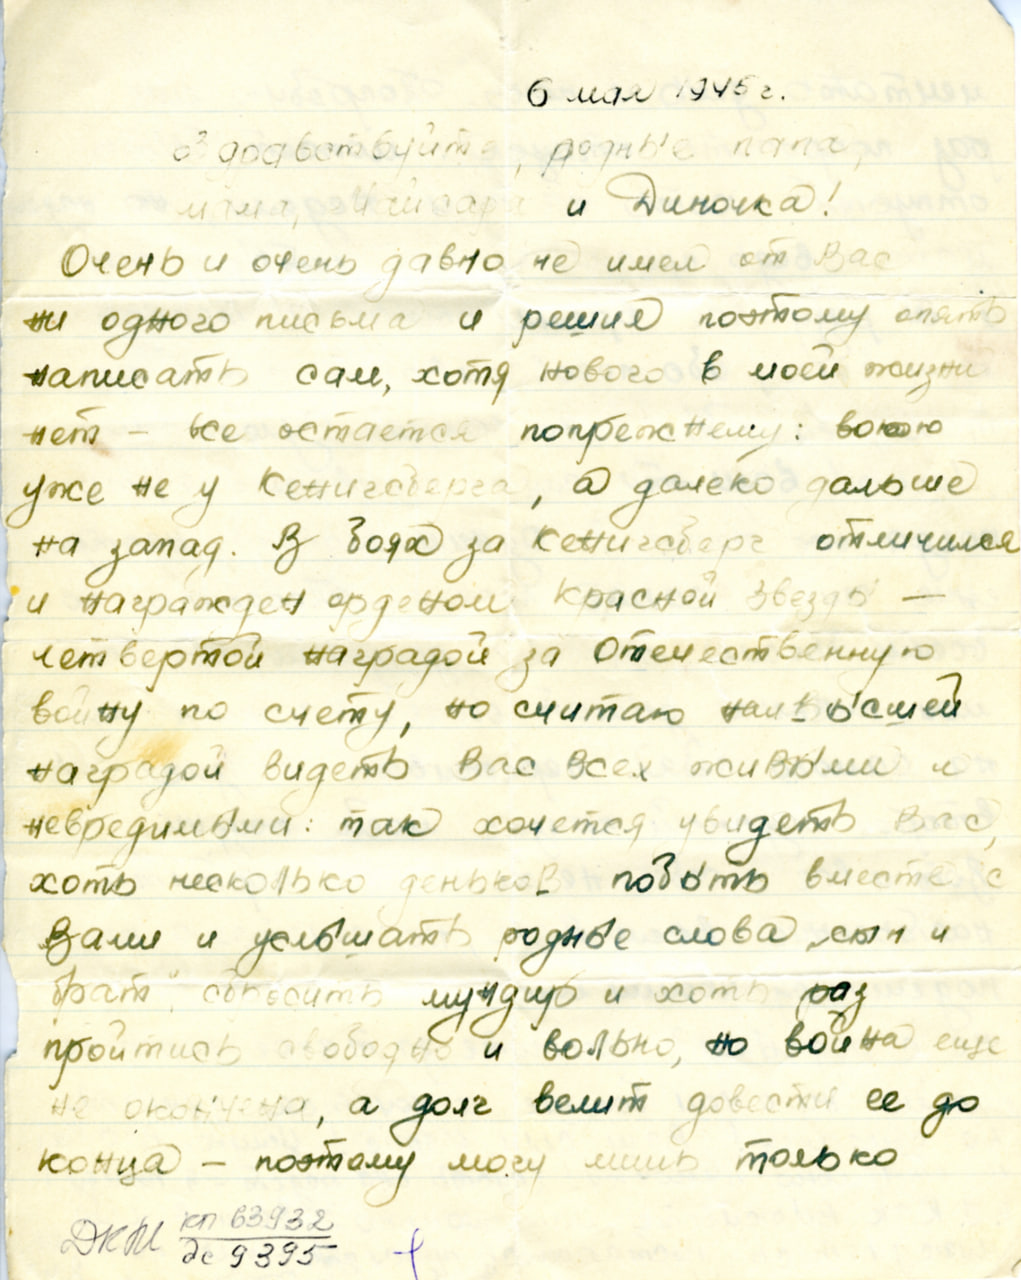 6 мая 1945 г.
Здравствуйте, родные папа,
мама, и Диночка!
Очень и очень давно не имел от Вас
ни одного письма и решил поэтому опять
написать сам, хотя нового в моей жизни
нет – все остается попрежнему: воюю
уже не у Кенигсберга, а далеко дальше
на запад. В боях за Кенигсберг отличился
и награжден орденом Красной Звезды —
четвертой наградой за Отечественную
войну по счету, но считаю наивысшей
наградой видеть Вас всех живыми и
невредимыми: так хочется увидеть Вас,
хоть несколько деньков побыть вместе с
Вами и услышать родные слова „сын и
брат", сбросить мундир и хоть раз
пройтись свободно и вольно, но война еще
не окончена, а долг велит довести ее до
конца – поэтому могу лишь только
ДКМ кп 63932
дс 9395